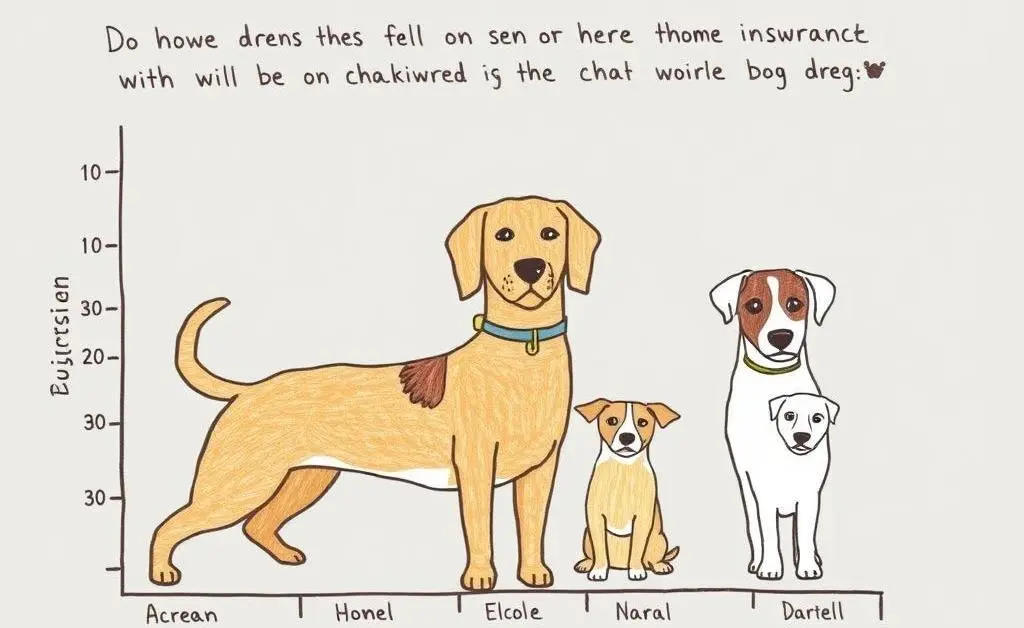 Do howe drens thes fell on sen or here thome inswranct
with will be on chakiwred is the chat woirle bog dreg:
10
10
30
20
30
30
Acrean
Honel
Elcole
Naral
Dartell